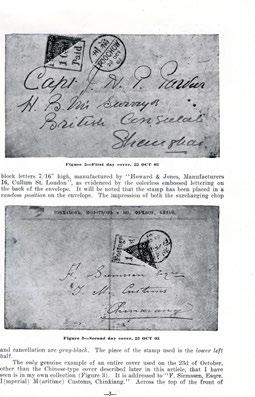 Paid
FOOCHOW
Capt J. H. P. Parker
H. B. Ms Surveyor
British Consulate
Shanghai
Figure 2—First day cover, 22 OCT 95
block letters 7/16" high, manufactured by "Howard & Jones, Manufacturers
16, Cullum St. London", as evidenced by the colorless embossed lettering on
the back of the envelope. It will be noted that the stamp has been placed in a
random position on the envelope. The impression of both the surcharging chop
F. Siemssen Esqre
I. M. Customs
Chinkiang
Figure 3—Second day cover, 23 OCT 95
and cancellation are grey-black. The piece of the stamp used is the lower left
half.
The only genuine example of an entire cover used on the 23d of October,
other than the Chinese-type cover described later in this article, that I have
seen is in my own collection (Figure 3). It is addressed to "F. Siemssen, Esqre.
I(mperial) M(aritime) Customs, Chinkiang." Across the top of the front of
—3—